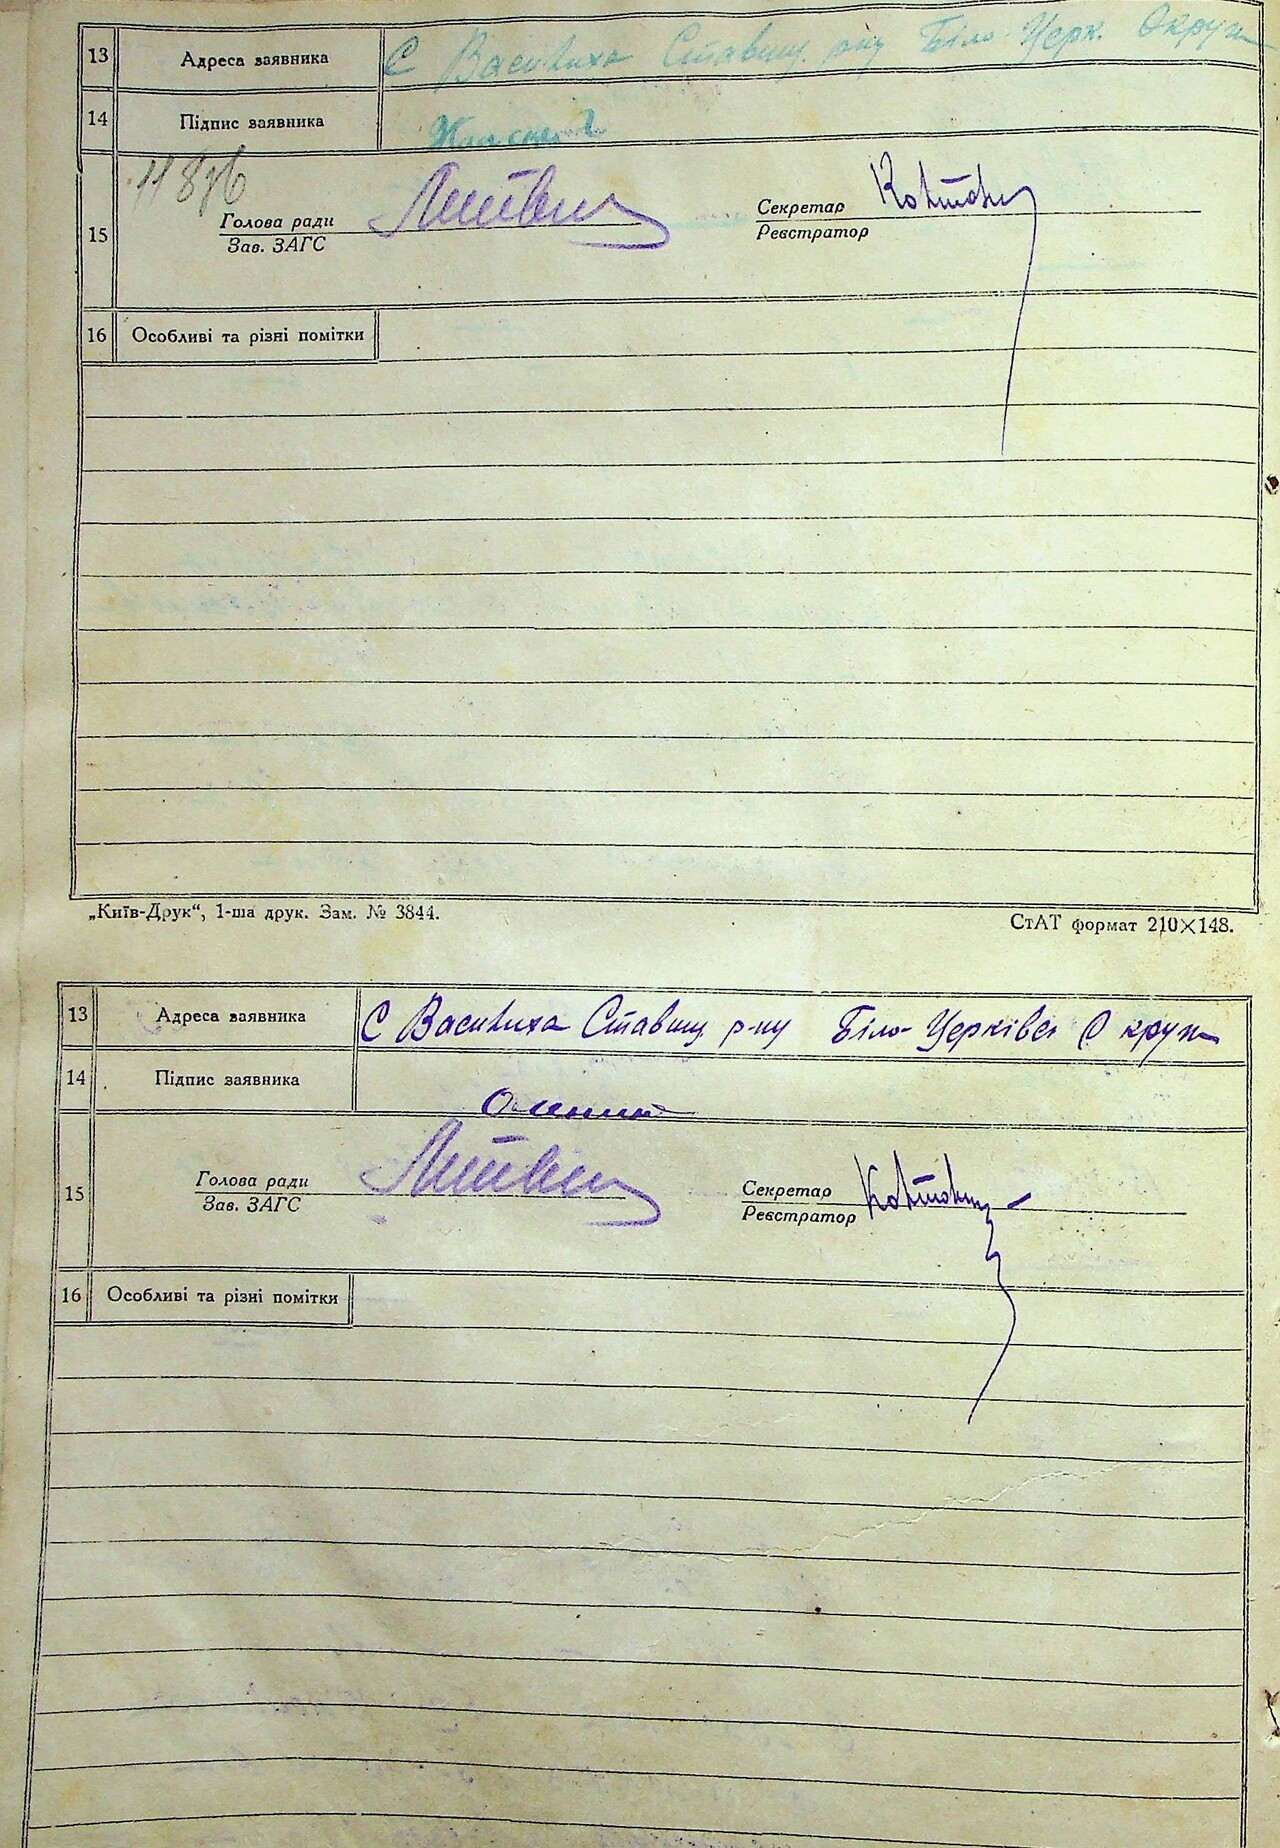 13 Адреса заявника С Василиха Ставищ. р-ну Біло-Церк. Округи
14 Підпис заявника
11 8
15 Голова ради Литвин Секретар
Зав. ЗАГС Реєстратор
16 Особливі та різні помітки
„Київ-Друк“, 1-ша друк. Зам. № 3844. СтАТ формат 210×148.
13 Адреса заявника С Василиха Ставищ р-ну Біло-Церківсь Округи
14 Підпис заявника
15 Голова ради Литвин Секретар
Зав. ЗАГС Реєстратор
16 Особливі та різні помітки